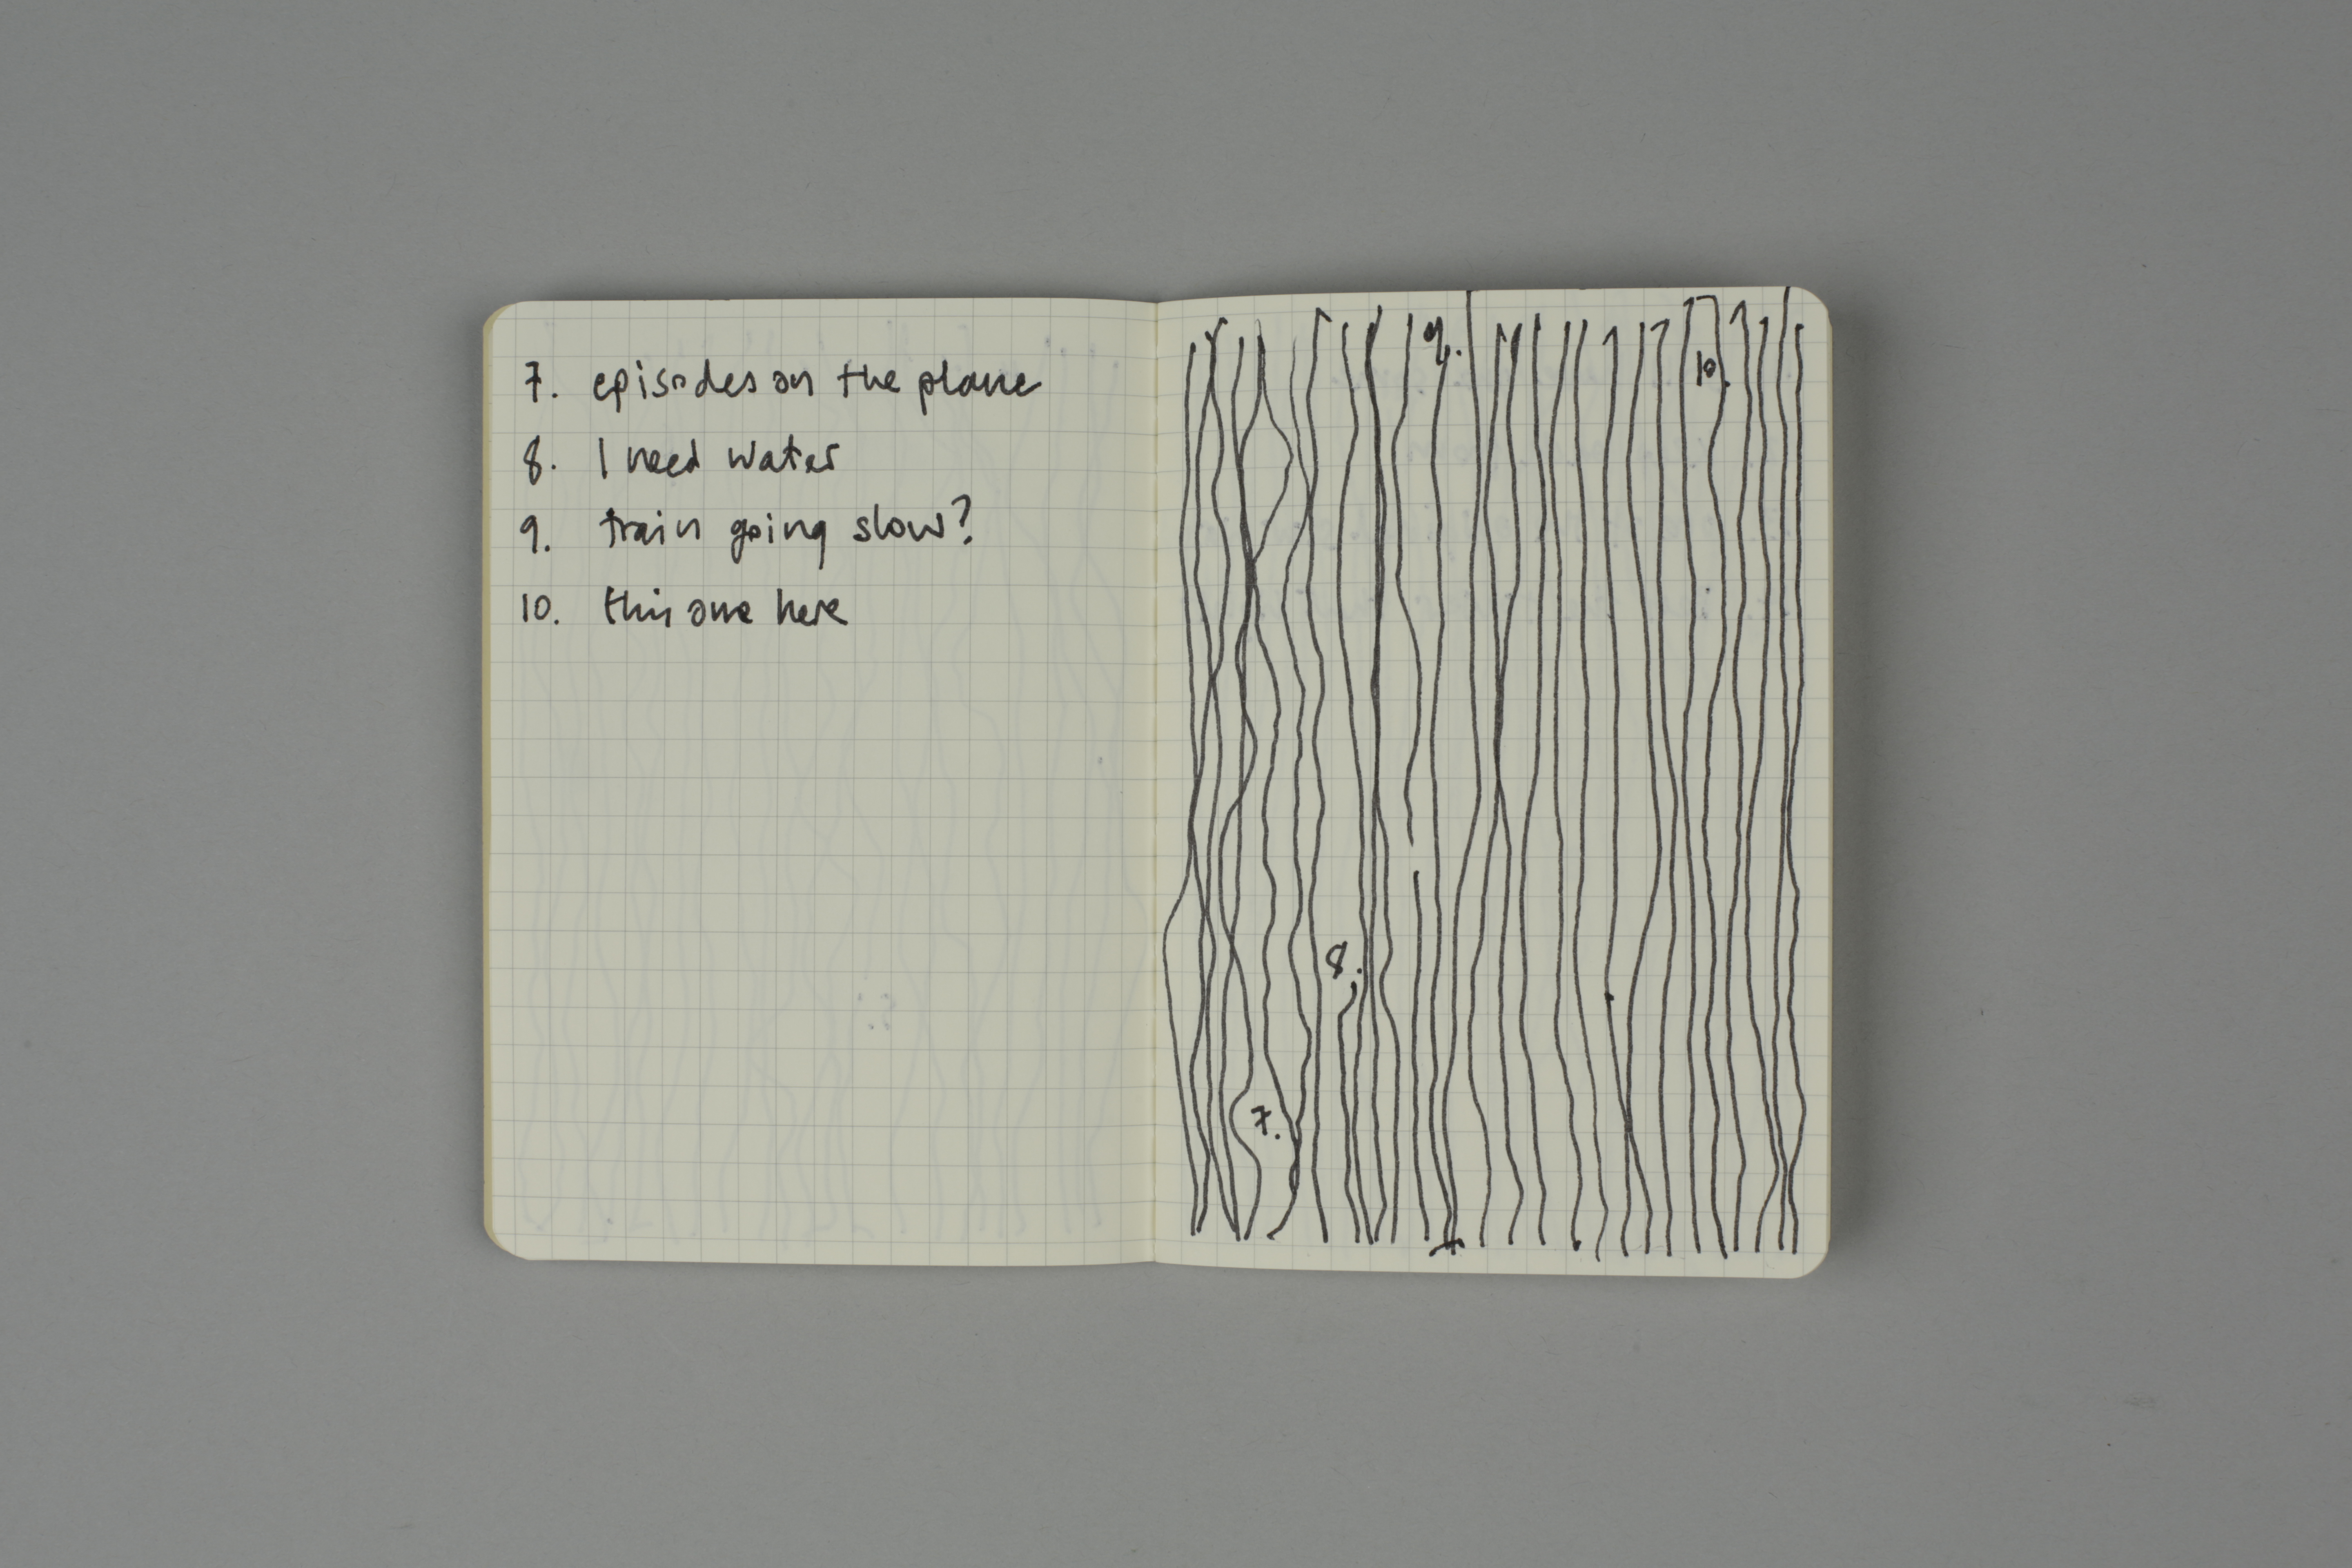 7. episodes on the plane
8. I need water
9. train going slow?
10. this one here
9.
10.
8.
7.